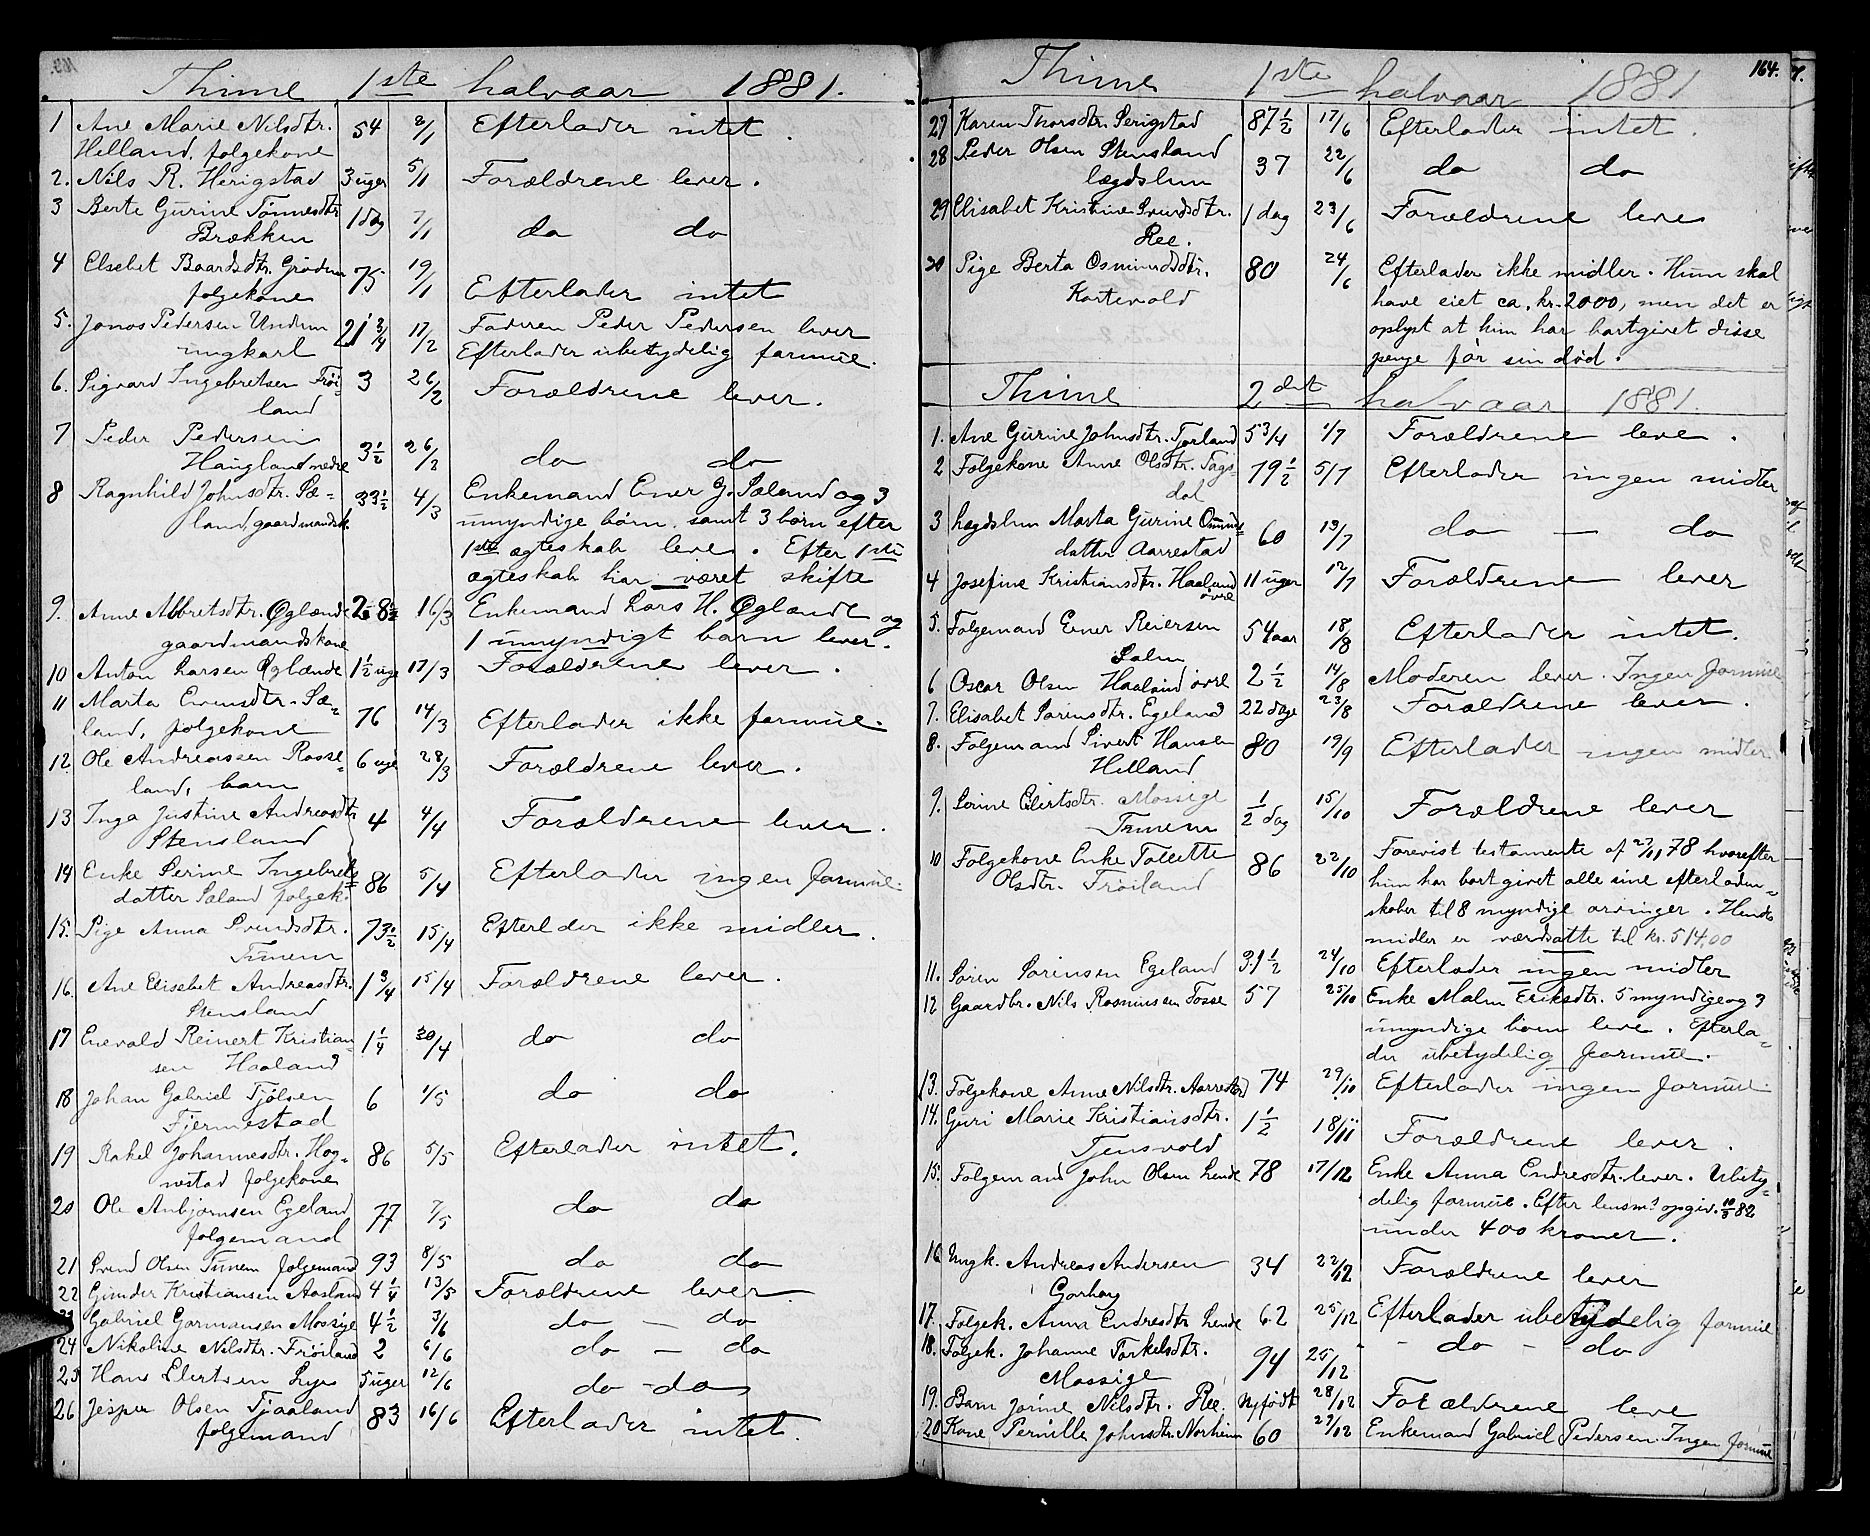 Thime 1ste halvaar 1881.
1 Ane Marie Nilsdtr. 54 2/1 Efterlader intet.
Helland, folgekone
2. Nils R. Herigstad 3 uger 5/1 Forældrene lever.
3 Berte Gurine Tønnesdtr 1 dag 7/1 do do
Brækken
4 Elsebet Baardsdtr. Grødem 75 19/1 Efterlader intet
folgekone
5. Jonas Pedersen Undem 21 3/4 17/2 Faderen Peder Pedersen lever
ungkarl Efterlader ubetydelig formue.
6. Sigvard Ingebretsen Frøi- 3 26/2 Forældrene lever.
land
7 Peder Pedersen 3 1/2 26/2 do do
Haugland nedre
8 Ragnhild Johnsdtr. Sæ= 33 1/2 4/3 Enkemand Ener J. Sæland og 3
land, gaardmandsk. umyndige børn samt 3 børn efter
1ste ægteskab leve. Efter 1ste
ægteskab har været skifte
9. Anne Albretsdtr. Øglænde 28 1/2 16/3 Enkemand Lars H. Øglænde og
gaardmandskone 1 umyndigt barn lever.
10 Anton Larsen Øglænde 1 1/2 uge 17/3 Forældrene lever.
11 Marta Evensdtr. Sæ= 76 14/3 Efterlader ikke formue.
land, folgekone
12. Ole Andreassen Rosse= 6 uge 28/3 Forældrene lever.
land, barn
13 Inga Justine Andreasdtr 4 4/4 Forældrene lever.
Stensland
14 Enke Serine Ingebrets= 86 5/4 Efterlader ingen formue.
datter Sæland folgek.
15. Pige Anna Svendsdtr. 73 1/2 15/4 Efterlder ikke midler.
Tunem
16. Ane Elisebet Andreasdtr. 1 3/4 15/4 Forældrene lever.
Stensland
17 Enevald Reinert Kristian= 1 1/4 30/4 do do
sen Haaland
18 Johan Gabriel Tjølsen 6 1/5 do do
Fjermestad
19 Rakel Johannesdtr. Hog= 86 5/5 Efterlader intet.
nestad folgekone
20 Ole Anbjørnsen Egeland 77 7/5 do do
folgemand
21 Svend Olsen Tunem folgemand 93 8/5 do do
22 Gunder Kristiansen Aasland 4 1/4 13/5 Forældrene lever.
23 Gabriel Gormansen Mossige 4 1/2 3/6 do — do
24 Nikoline Nilsdtr. Frøiland 2 6/6 do — do
25 Hans Elertsen Lye 5 uger 12/6 do - do
26 Jesper Olsen Tjaaland 83 16/6 Efterlader intet.
folgemand
164.
Thime 1ste halvaar 1881
27 Karen Thorsdtr. Serigstad 87 1/2 17/6 Efterlader intet.
28 Peder Olsen Stensland 37 22/6 do do
lægdslem
29 Elisabet Kristine Svendsdtr. 1 dag 23/6 Forældrene leve
Ree.
30 Pige Berta Osmundsdtr. 80 24/6 Efterlader ikke midler. Hun skal
Kartevold have eiet ca. kr. 2000, men det er
oplyst at hun har bortgivet disse
penge før sin død.
Thime 2det halvaar 1881.
1. Ane Gurine Johnsdtr. Tjorland 5 3/4 1/7 Forældrene leve.
2 Folgekone Anne Olsdtr. Tags- 79 1/2 5/7 Efterlader ingen midler
dal
3 Lægdslem Marta Gurine Osmunds= 60 19/7 do — do
datter Aarrestad
4 Josefine Kristiansdtr. Haaland 11 uger 12/7 Forældrene lever
øvre
5. Folgemand Ener Reiersen 54 aar 18/8 Efterlader intet.
Salen
6 Oscar Olsen Haaland øvre 2 1/2 14/8 Moderen lever. Ingen formue
7. Elisabet Sørensdtr. Egeland 22 dage 23/8 Forældrene lever.
8. Folgemand Sivert Hansen 80 19/9 Efterlader ingen midler.
Helland
9. Sørine Elertsdtr. Mossige 1/2 dag 15/10 Forældrene lever
Tunem
10 Folgekone Enke Tollette 86 22/10 Forevist testamente af 27/11 78 hvorefter
Olsdtr. Frøiland hun har bortgivet alle sine efterladen=
skaber til 8 myndige arvinger. Hendes
midler er værdsatte til kr. 514,00
11. Søren Sørensen Egeland 31 1/2 24/10 Efterlader ingen midler
12 Gaardbr. Nils Rasmussen Tosse 57 25/10 Enke Malen Eriksdtr. 5 myndige og 3
umyndige børn leve. Efterla=
der ubetydelig formue.
13. Folgekone Anne Nilsdtr. Aarrestad 74 29/10 Efterlader ingen formue.
14. Guri Marie Kristiansdtr. 1 1/2 18/11 Forældrene lever.
Tjensvold
15. Folgemand John Olsen Lende 78 17/12 Enke Anna Endresdtr. lever. Ubety=
delig formue. Efter lensm? opgiv. 10/3 82
under 400 kroner.
16 Ungk. Andreas Andersen 34 22/12 Forældrene lever
Garborg
17. Folgek. Anna Endresdtr Lende 62 25/12 Efterlader ubetydelig formue
18. Folgek. Johanne Torkelsdtr. 94 25/12 - do - do
Mossige
19. Barn Jørine Nilsdtr. Ree. Nyfødt 28/12 Forældrene leve
20. Kone Pernille Johnsdtr. Norheim 60 29/12 Enkemand Gabriel Pedersen. Ingen formue